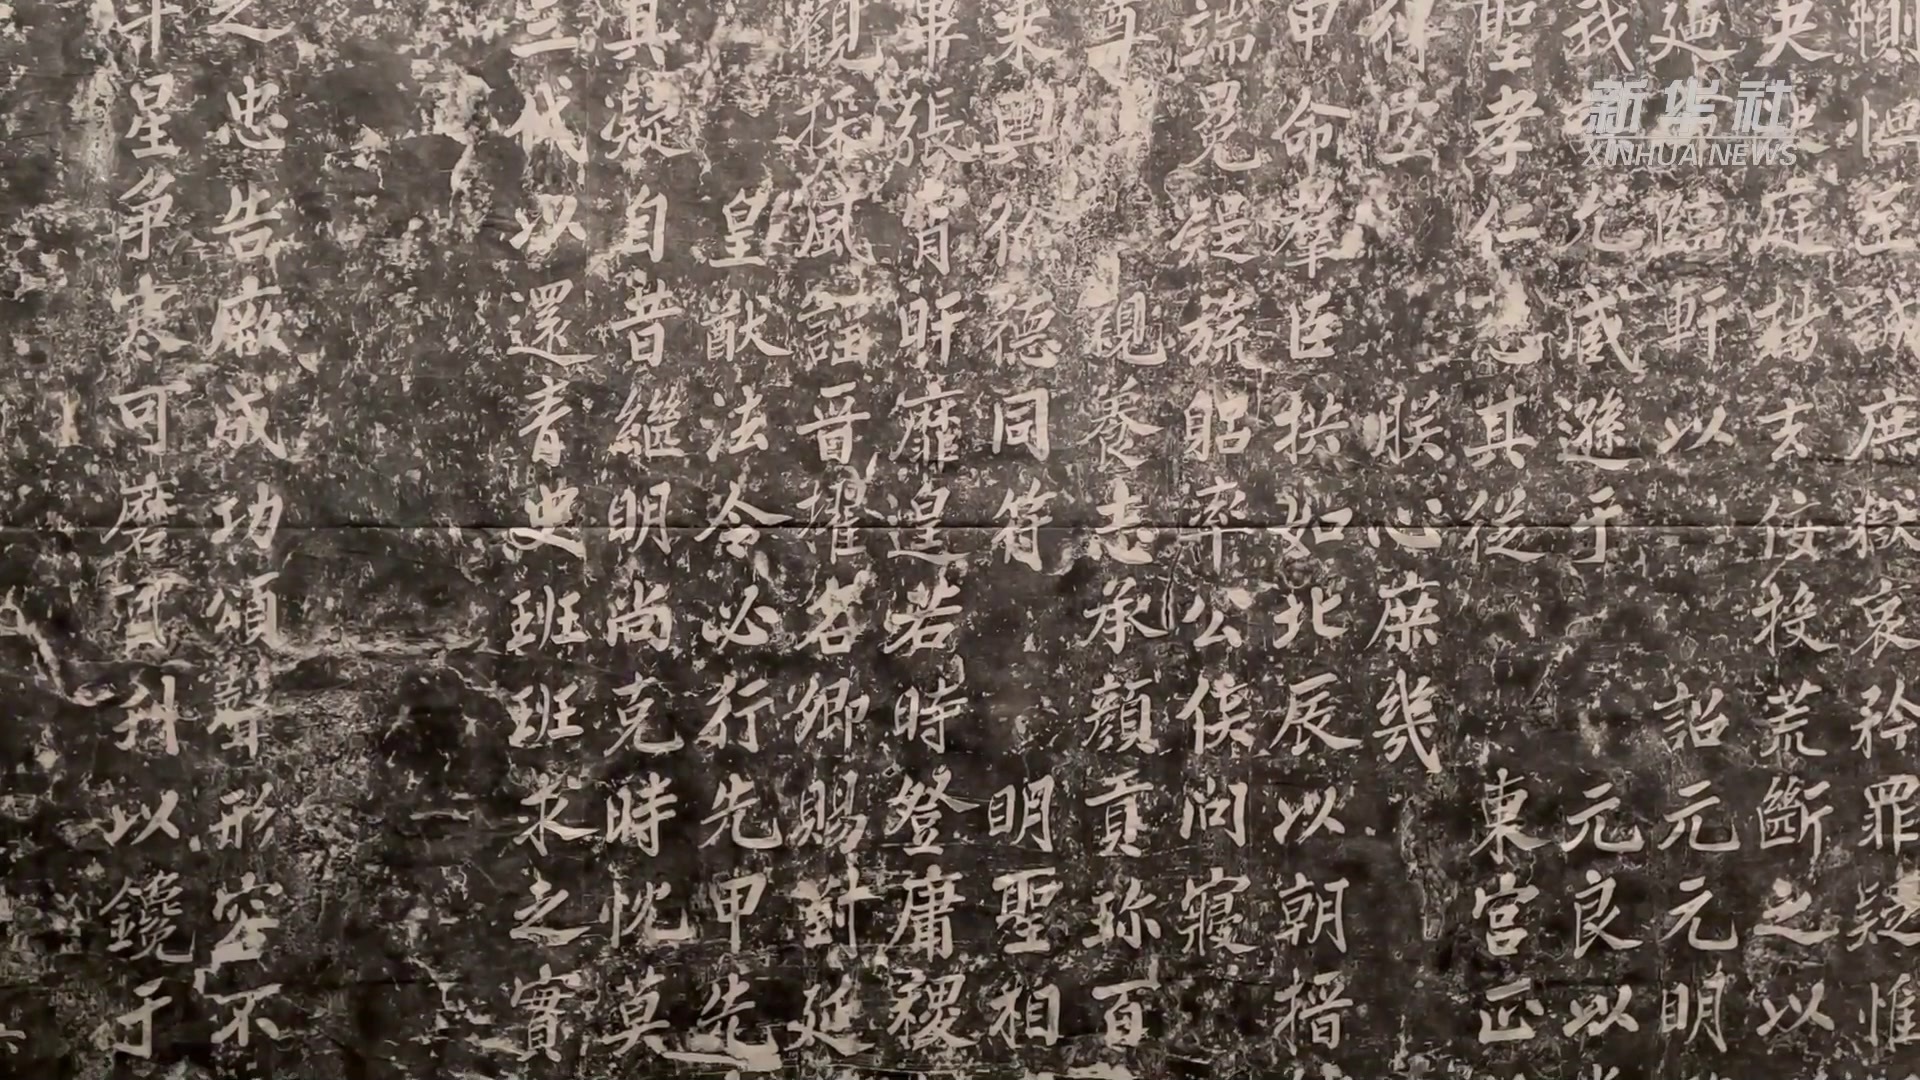 惻 恤 至 誠 庶 獄 哀 矜 罪 疑 惟
夬 庭 揚 去 佞 投 荒 斷 之 以
臨 軒 以 詔 元 元 明
我 允 咸 遜 于 元 良 以
聖 孝 仁 其 從 東 宮 正
位 朕 心 庶 幾
申 命 群 臣 拱 如 北 辰 以 朝 搢
端 冕 凝 旒 躬 率 公 侯 問 寢
尊 視 養 志 承 顏 貢 珍 百
來 輿 德 同 符 明 聖 相
畢 張 宵 旰 靡 遑 若 時 登 庸 稷
觀 採 風 謠 晉 擢 若 卿 賜 對 延
皇 猷 法 令 必 行 先 甲 先
其 凝 自 昔 繼 明 尚 克 時 忱 莫
三 代 以 還 青 史 班 班 求 之 實
之 忠 告 厥 成 功 頌 聲 形 容 不
斗 星 爭 寒 可 磨 升 以 鑱 于
新华社
XINHUA NEWS